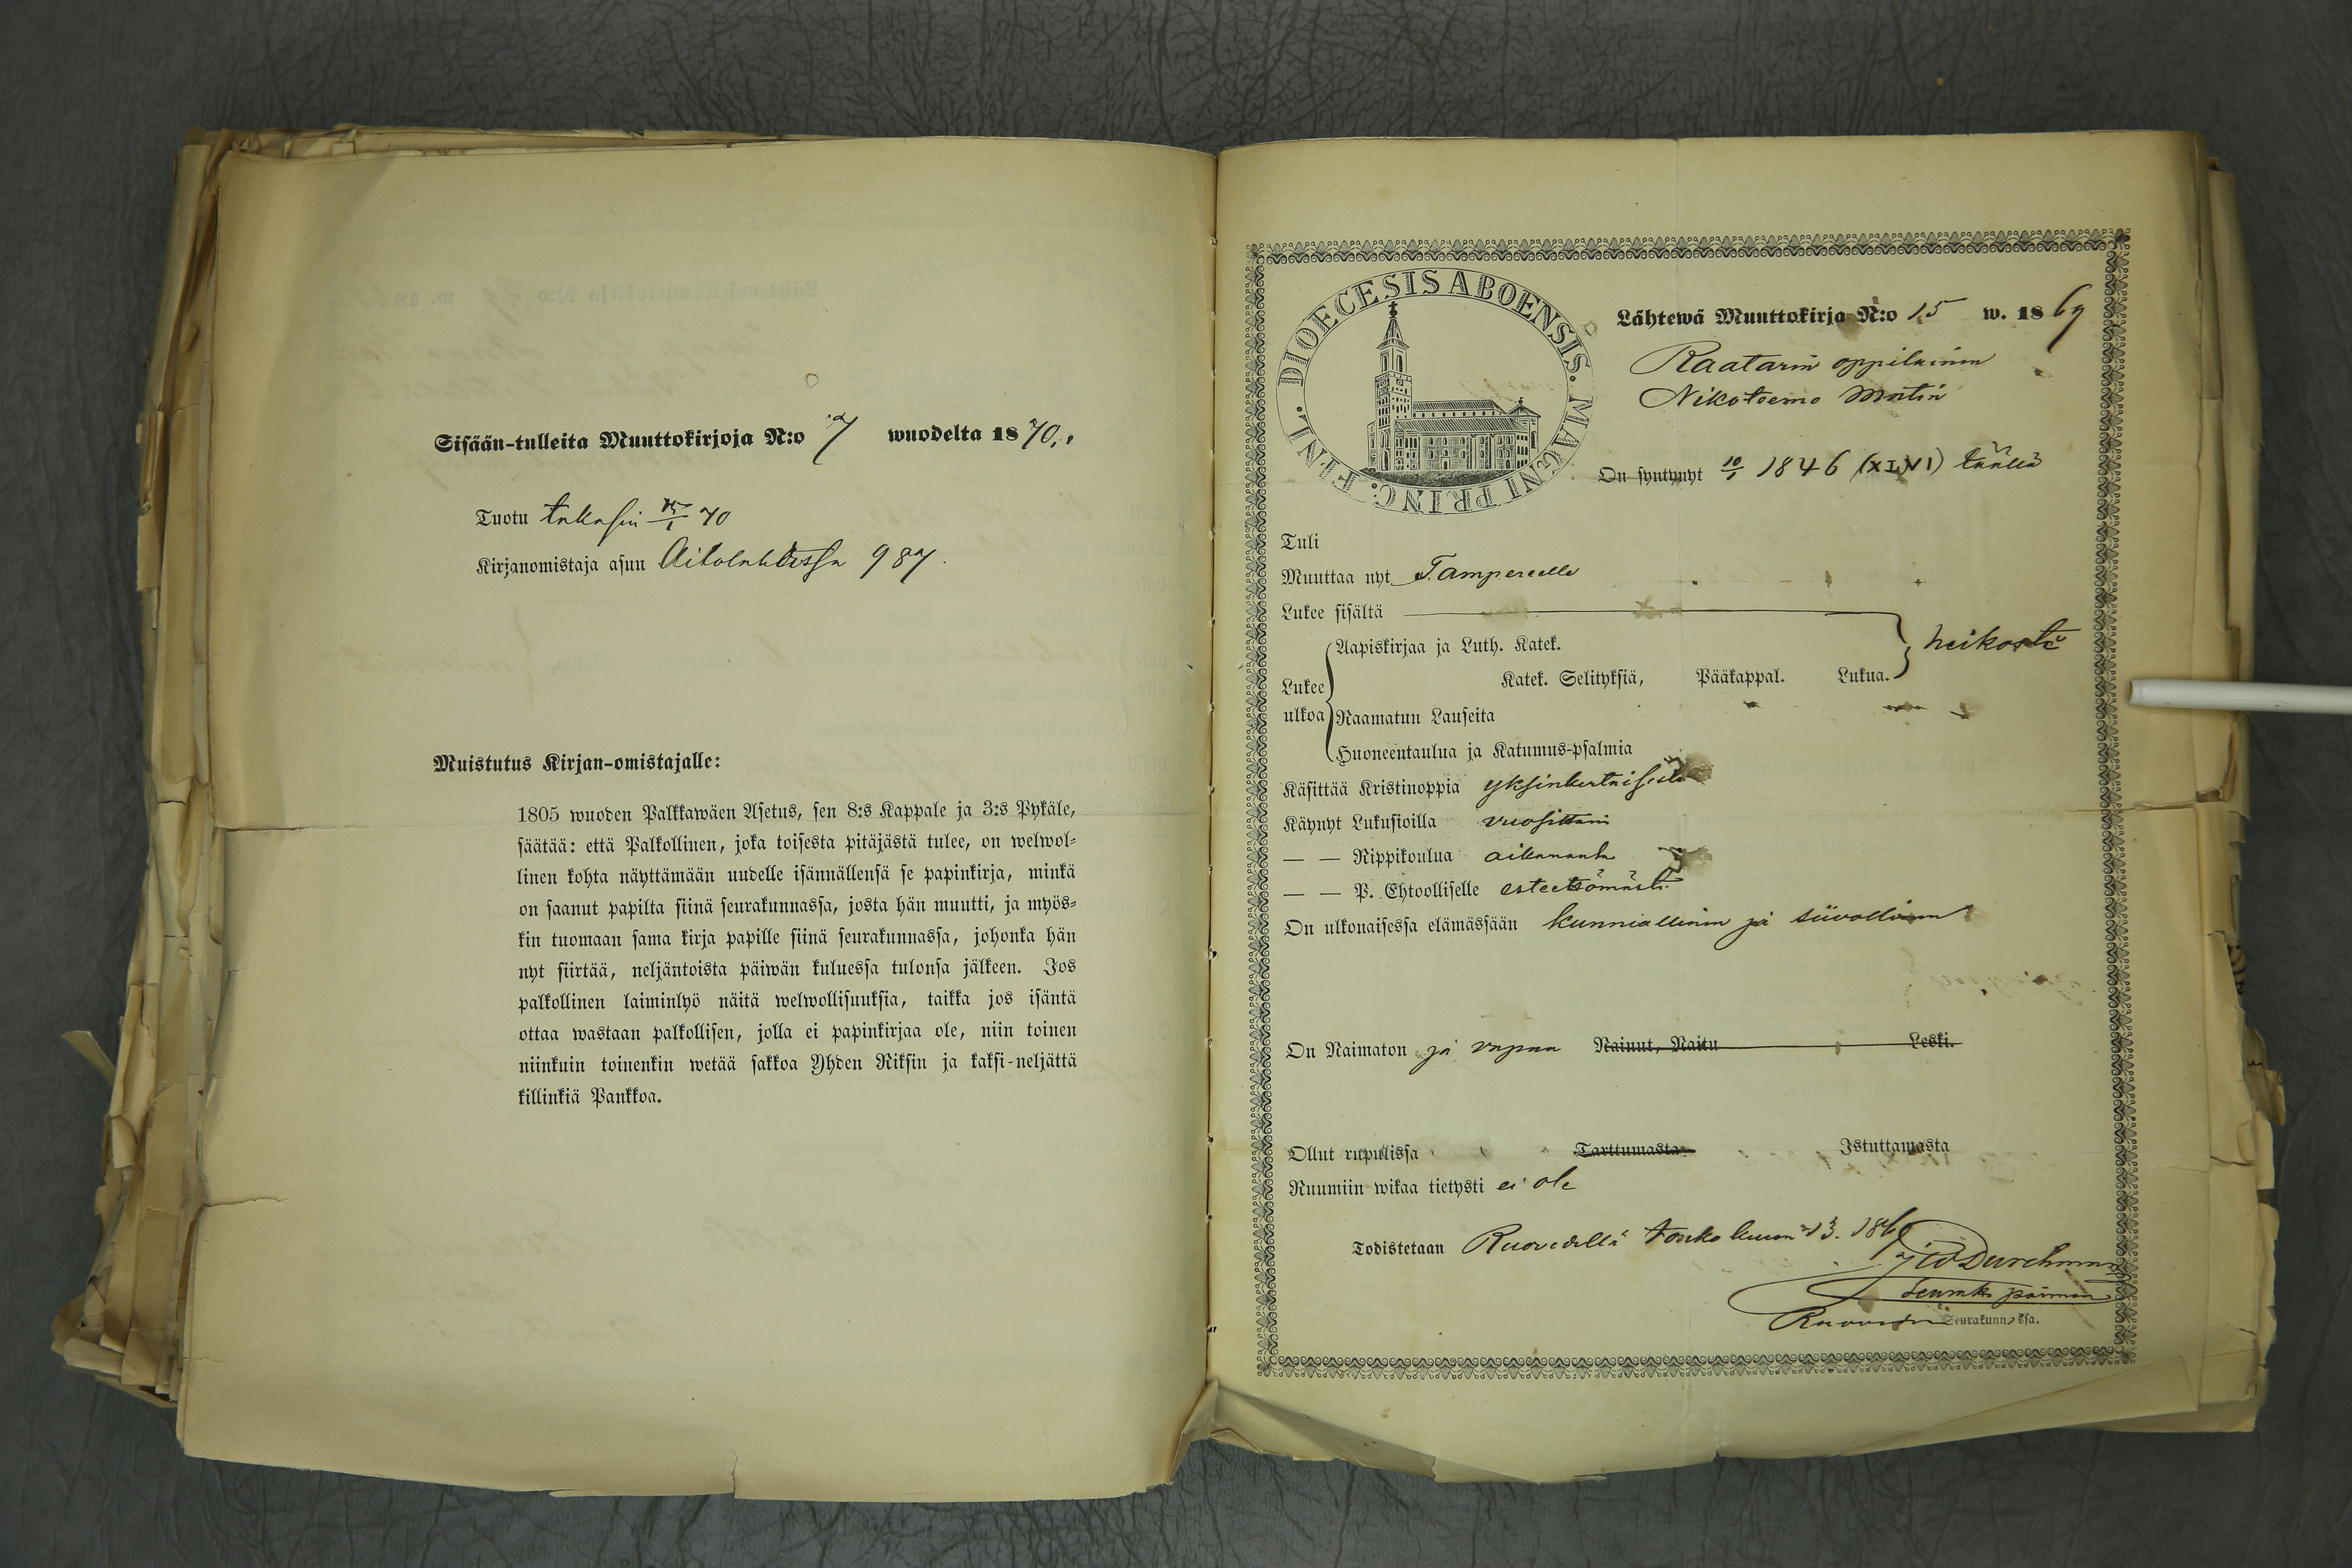 Sisään-tulleita Muuttokirjoja N:o 7 wuodelta 1870.
Tuotu takasin 15/1 70
Kirjanomistaja asuu Aitolahdessa 987.
Muistutus Kirjan-omistajalle:
1805 wuoden Palkkawäen Asetus, sen 8:s Kappale ja 3:s Pykäle,
säätää: että Palkollinen, joka toisesta pitäjästä tulee, on welwol-
linen kohta näyttämään uudelle isännällensä se papinkirja, minkä
on saanut papilta siinä seurakunnassa, josta hän muutti, ja myös-
kin tuomaan sama kirja papille siinä seurakunnassa, johonka hän
nyt siirtää, neljäntoista päiwän kuluessa tulonsa jälkeen. Jos
palkollinen laiminlyö näitä welwollisuuksia, taikka jos isäntä
ottaa wastaan palkollisen, jolla ei papinkirjaa ole, niin toinen
niinkuin toinenkin wetää sakkoa Yhden Riksin ja kaksi-neljättä
killinkiä Pankkoa.
DIOECESIS ABOENSIS. MAGNI PRINC. FINL.
Lähtewä Muuttokirja N:o 15 w. 1869
Raatarin oppilainen
Nikoteemo Matin
On syntynyt 10/5 1846 (XLVI) täällä
Tuli
Muuttaa nyt Tampereelle
Lukee sisältä
Aapiskirjaa ja Luth. Katek. heikosti
Lukee ulkoa Katek. Selityksiä, Pääkappal. Lukua.
Raamatun Lauseita
Huoneentaulua ja Katumus-psalmia
Käsittää Kristinoppia yksinkertaisesti
Käynyt Lukusioilla vuosittain
— — Rippikoulua aikananla
— — P. Ehtoolliselle esteettömästi
On ulkonaisessa elämässään kunniallinen ja siivollinen
On Naimaton ja vapaa Nainut, Naitu Leski.
Ollut rupulissa Tarttumasta Istuttamasta
Ruumiin wikaa tietysti ei ole
Todistetaan Ruovedellä Toukokuun 13. 1869
Durchman
Seurak. paimen
Ruoveden Seurakunnassa.